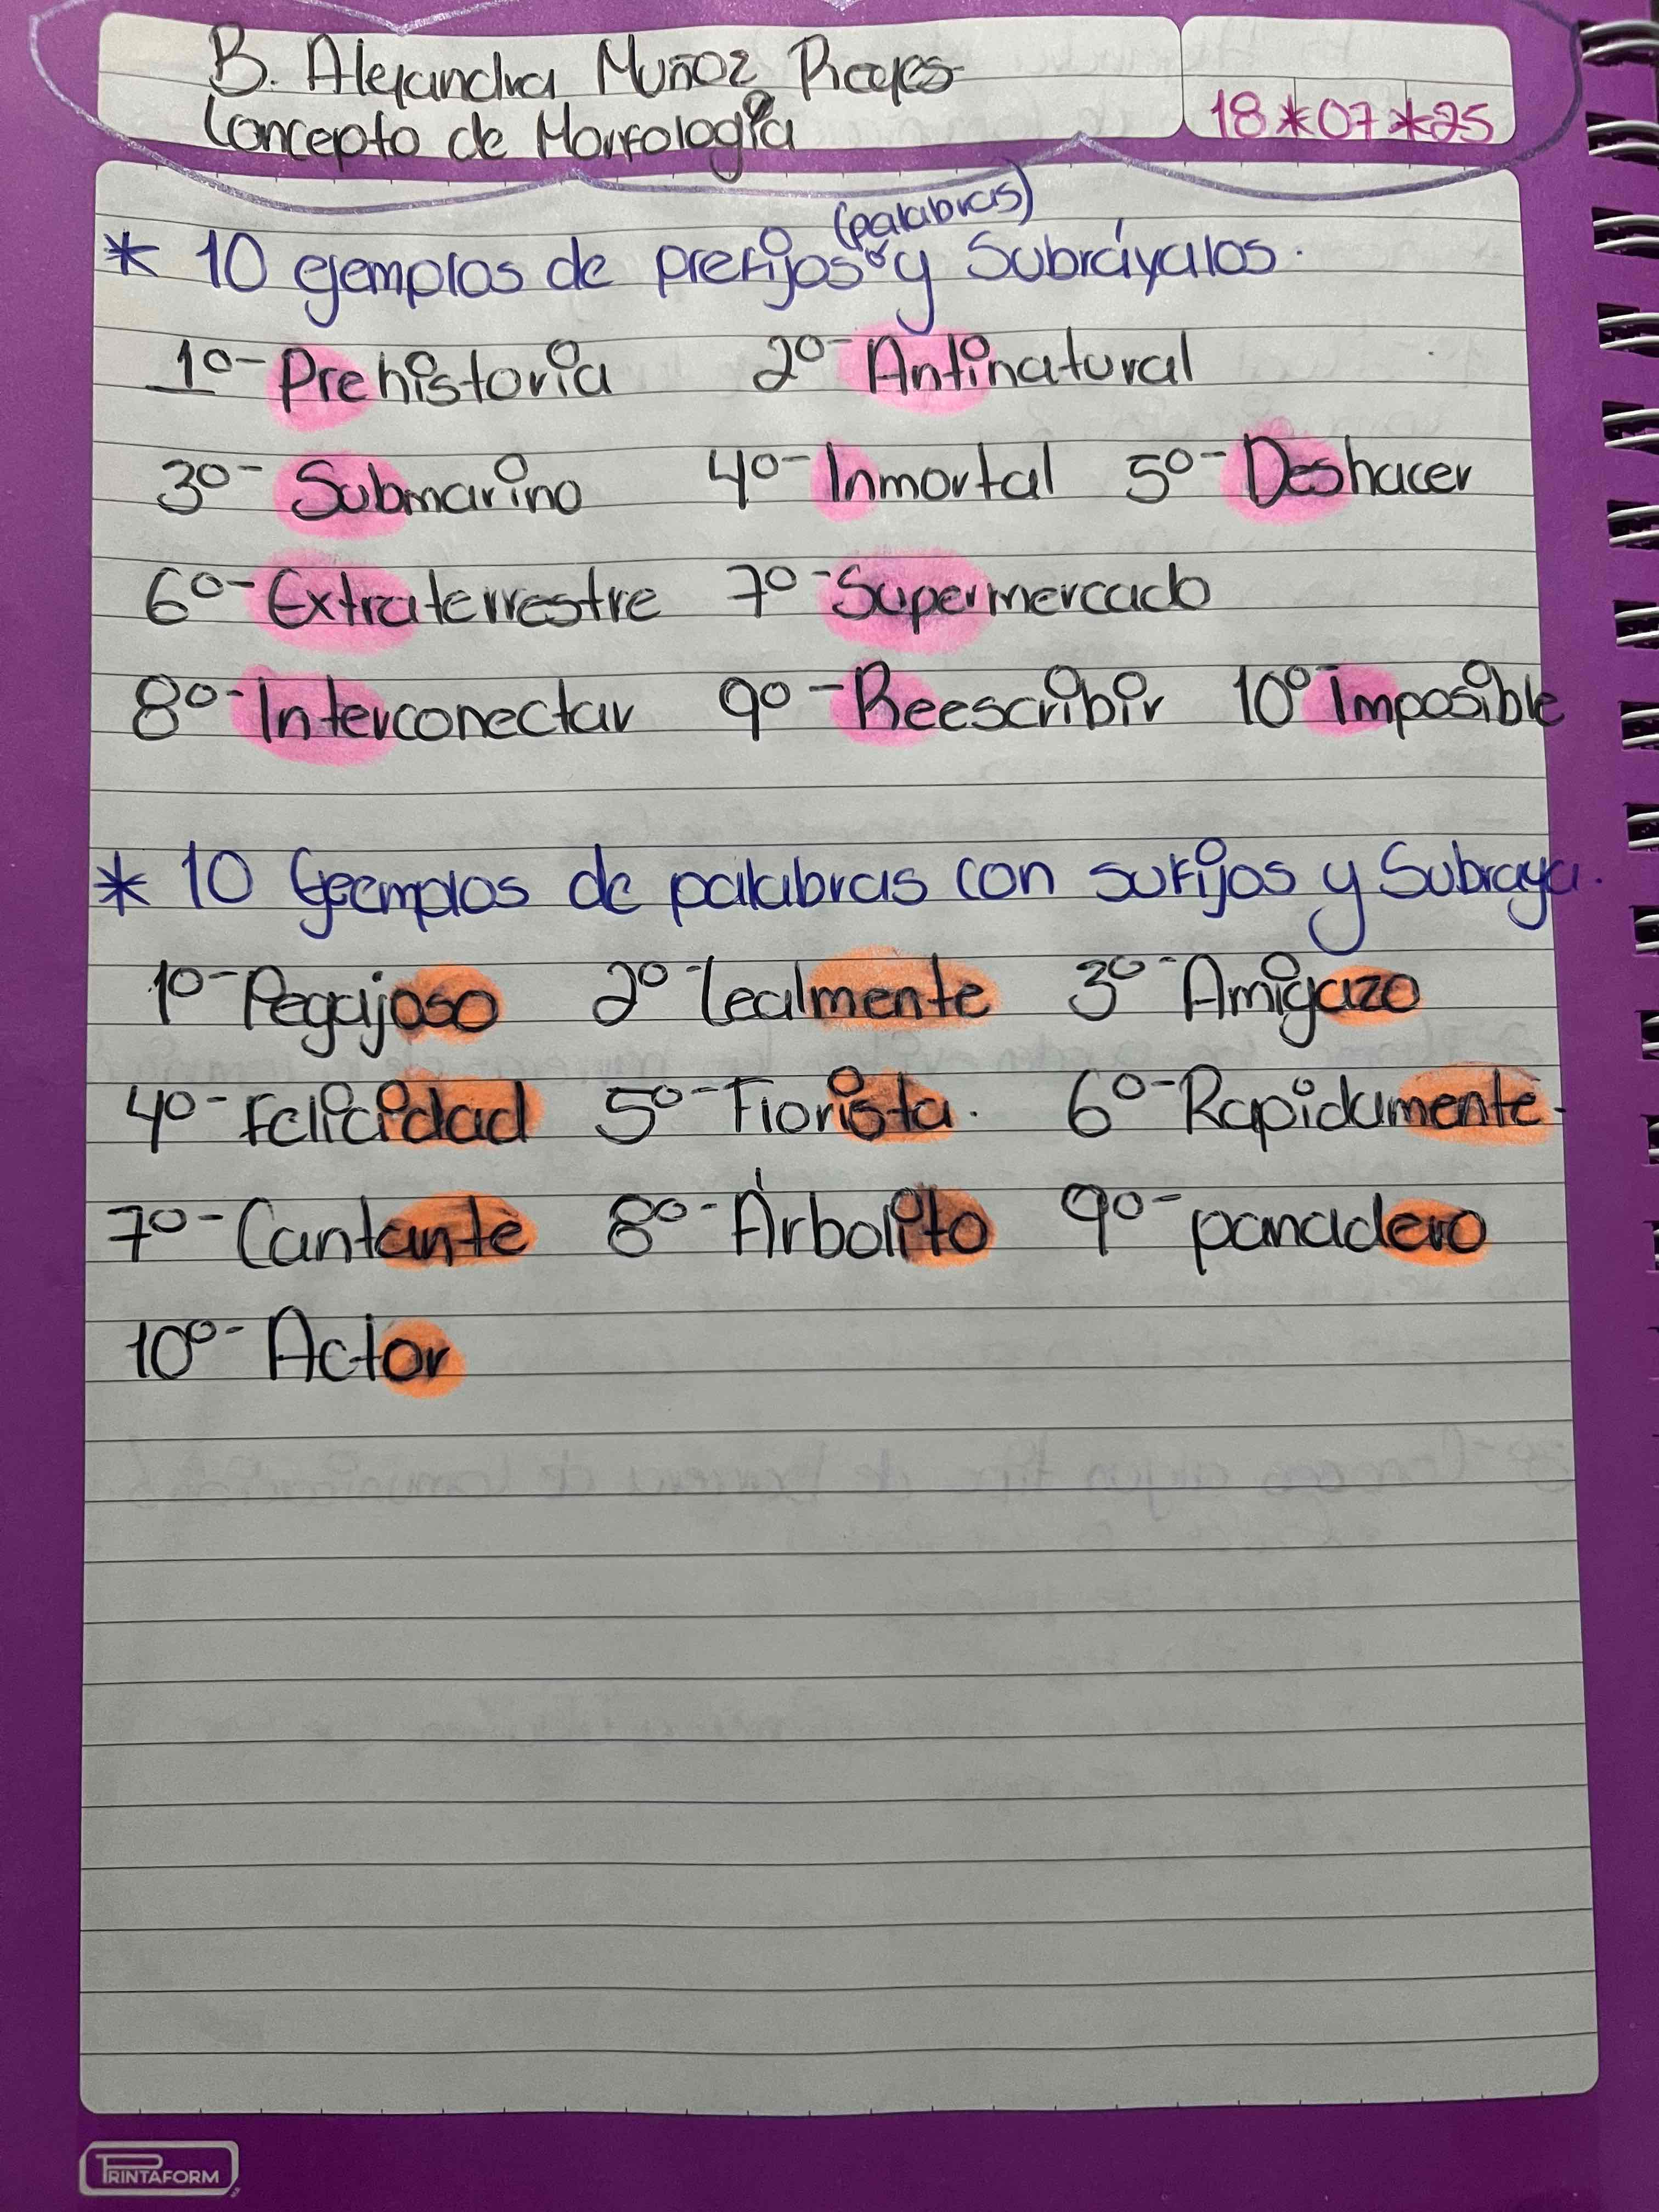 B. Alejandra Muñoz Reyes
Concepto de Morfología
18*07*25
(palabras)
* 10 ejemplos de prefijos y Subráyalos.
1º- Prehistoria 2º- Antinatural
3º- Submarino 4º- Inmortal 5º- Deshacer
6º- Extraterrestre 7º- Supermercado
8º- Interconectar 9º- Reescribir 10º- Imposible
* 10 Ejemplos de palabras con sufijos y Subraya.
1º- Pegajoso 2º- Lealmente 3º- Amigazo
4º- Felicidad 5º- Florista. 6º- Rapidamente.
7º- Cantante 8º- Árbolito 9º- panadero
10º- Actor
PRINTAFORM